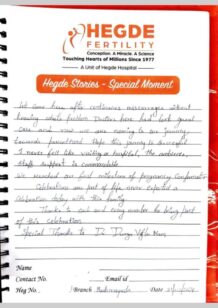 HEGDE
FERTILITY
Conception. A Miracle. A Science
Touching Hearts of Millions Since 1977
A Unit of Hegde Hospital
Hegde Stories - Special Moment
We came here after continuous miscarriages without
knowing whats problem. Doctors here took good
care and now we are coming to our journey
towards parenthood. Hope this journey is successful
I never felt like visiting a hospital, the ambience,
staff support is commendable
We reached our first milestone of pregnancy confirmation
Celebrations are part of life never expected a
celebration today with this family.
Thanks to each and every member for being part
of this celebration.
Special Thanks to Dr
Name
Contact No. Email id
Heg No. Branch Date